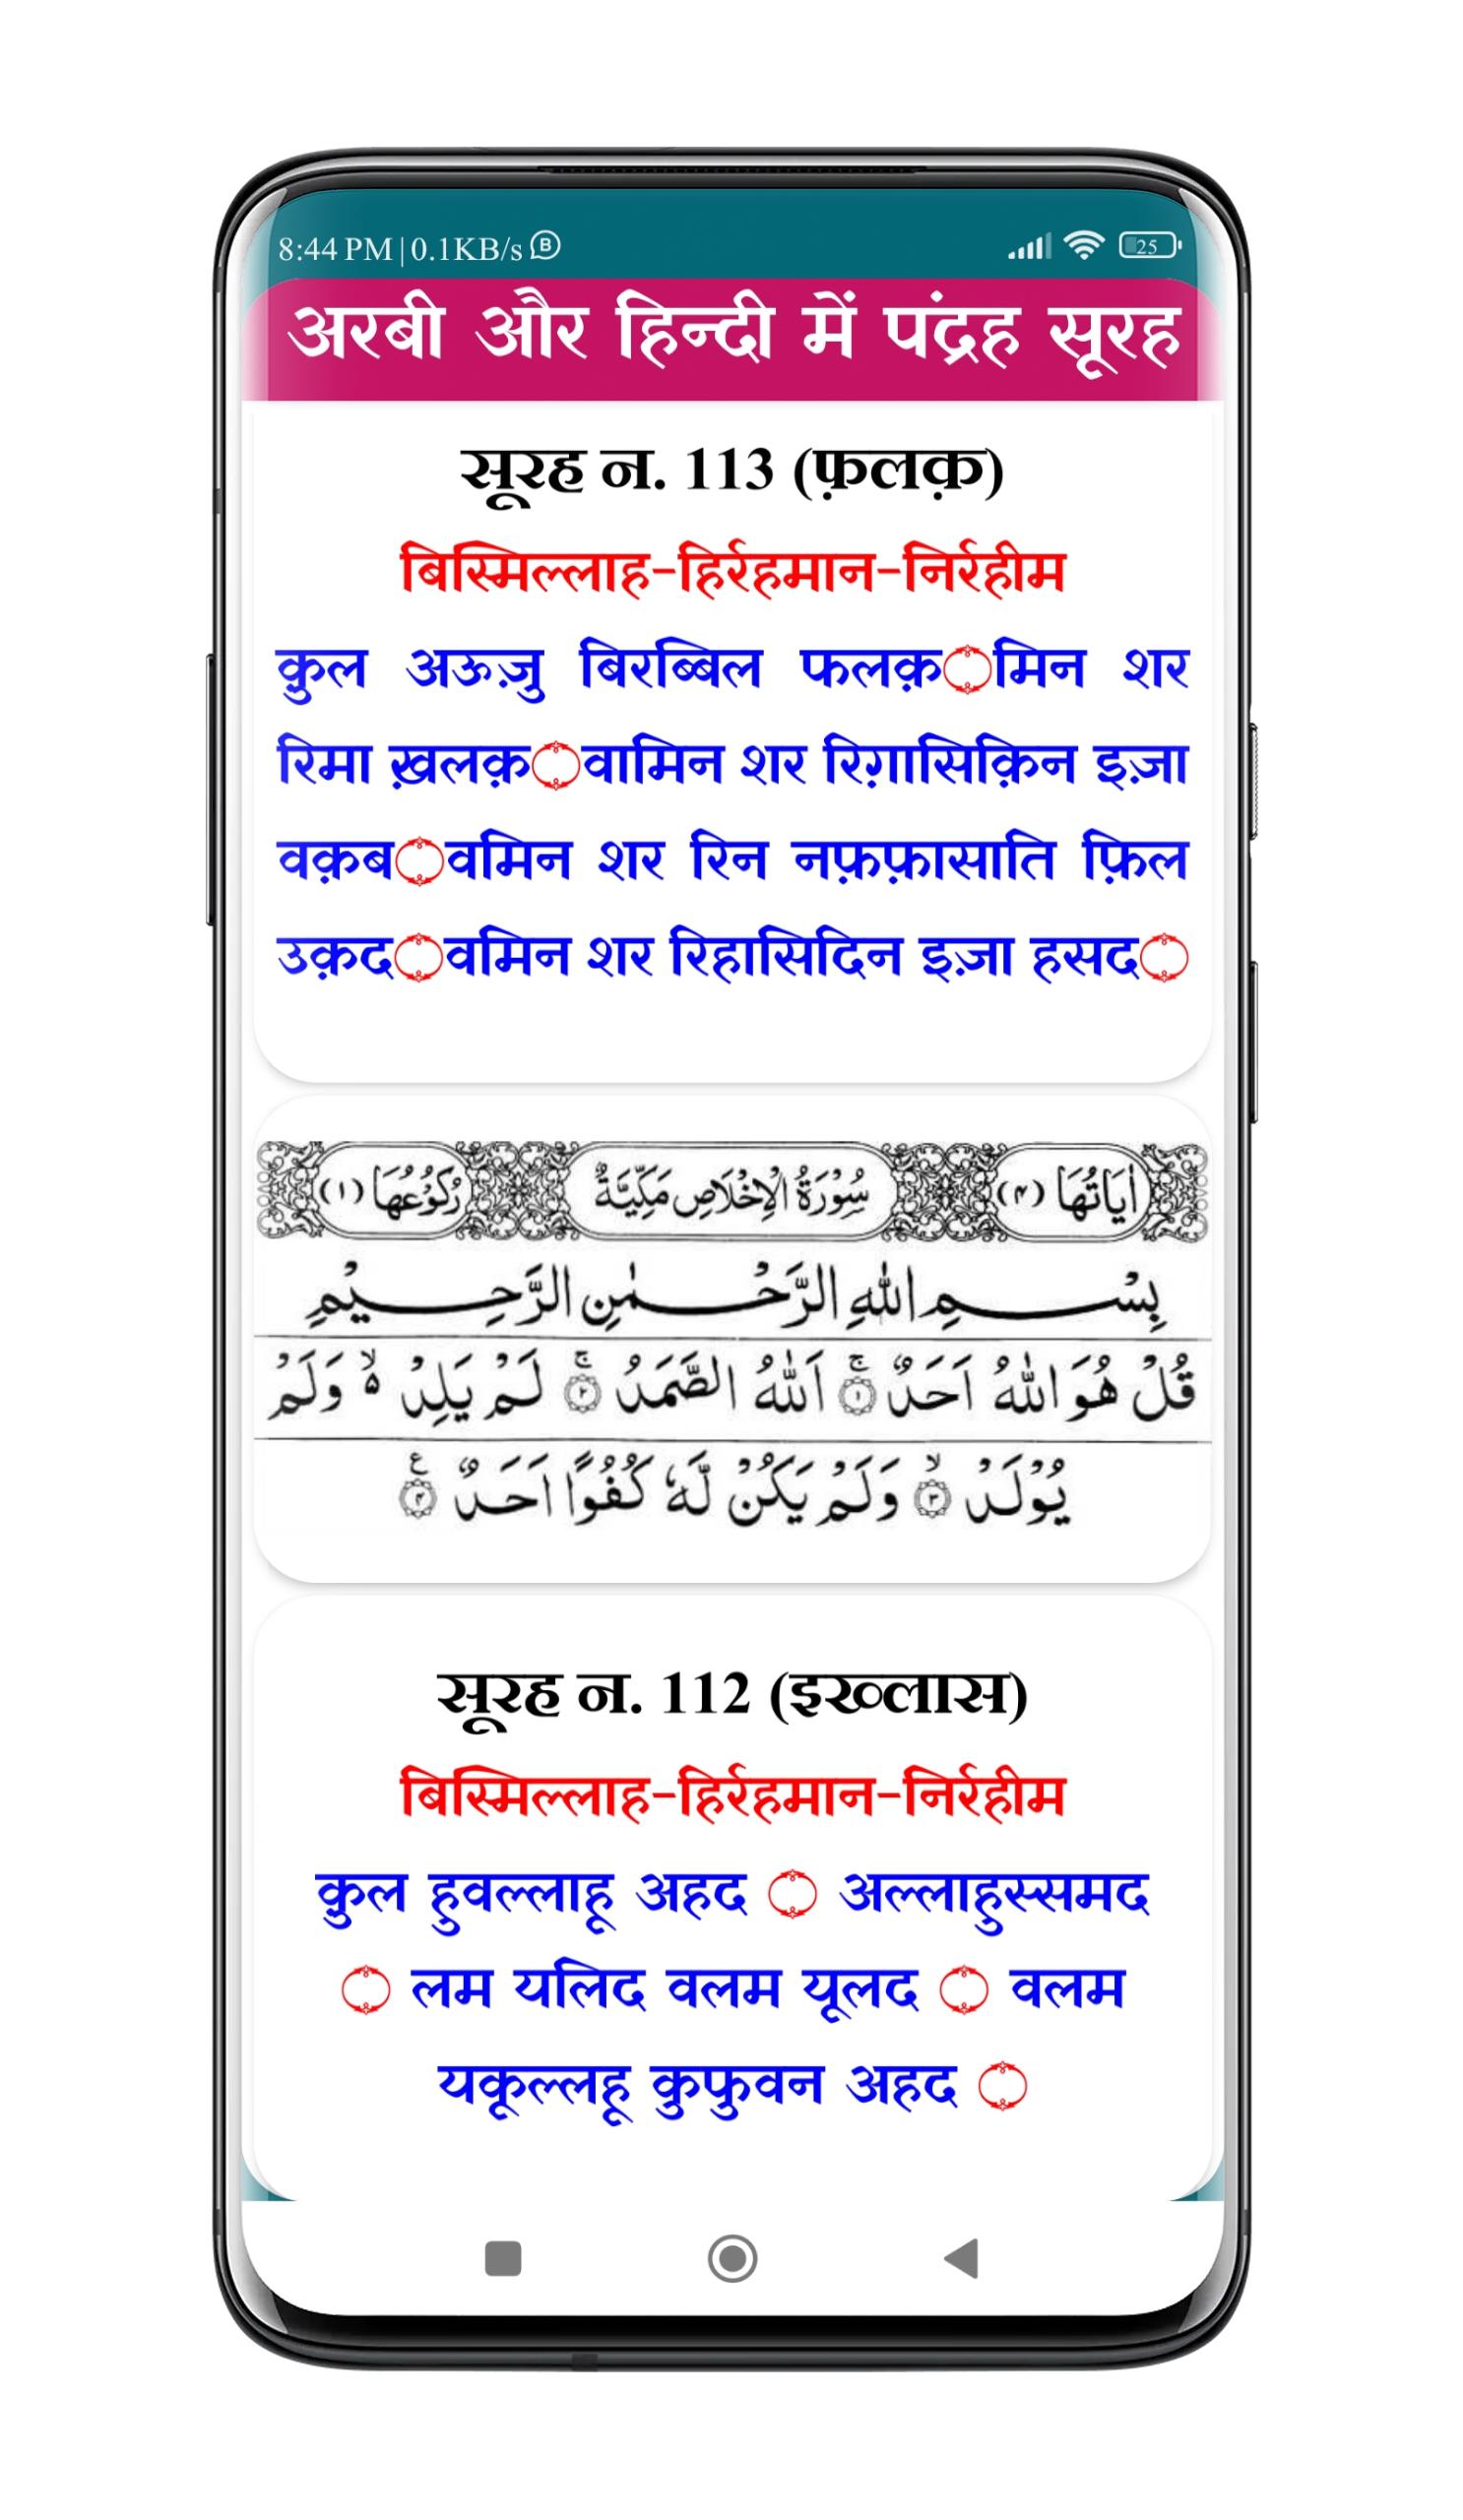 8:44 PM | 0.1KB/s B 25
अरबी और हिन्दी में पंद्रह सूरह
सूरह न. 113 (फ़लक़)
बिस्मिल्लाह-हिर्रहमान-निर्रहीम
क़ुल अऊज़ु बिरब्बिल फलक़۝मिन शर
रिमा ख़लक़۝वामिन शर रिग़ासिक़िन इज़ा
वक़ब۝वमिन शर रिन नफ़्फ़ासाति फ़िल
उक़द۝वमिन शर रिहासिदिन इज़ा हसद۝
اٰيَاتُهَا (۴) سُوْرَةُ الْاِخْلَاصِ مَكِّيَّةٌ رُكُوْعُهَا (۱)
بِسْمِ اللّٰهِ الرَّحْمٰنِ الرَّحِيْمِ
قُلْ هُوَ اللّٰهُ اَحَدٌ ۚ﴿۱﴾ اَللّٰهُ الصَّمَدُ ۚ﴿۲﴾ لَمْ يَلِدْ ۙ۬ وَلَمْ
يُوْلَدْ ۙ﴿۳﴾ وَلَمْ يَكُنْ لَّهٗ كُفُوًا اَحَدٌ ﴿۴﴾ ع
सूरह न. 112 (इख्लास)
बिस्मिल्लाह-हिर्रहमान-निर्रहीम
क़ुल हुवल्लाहू अहद ۝ अल्लाहुस्समद
۝ लम यलिद वलम यूलद ۝ वलम
यकूल्लहू कुफुवन अहद ۝